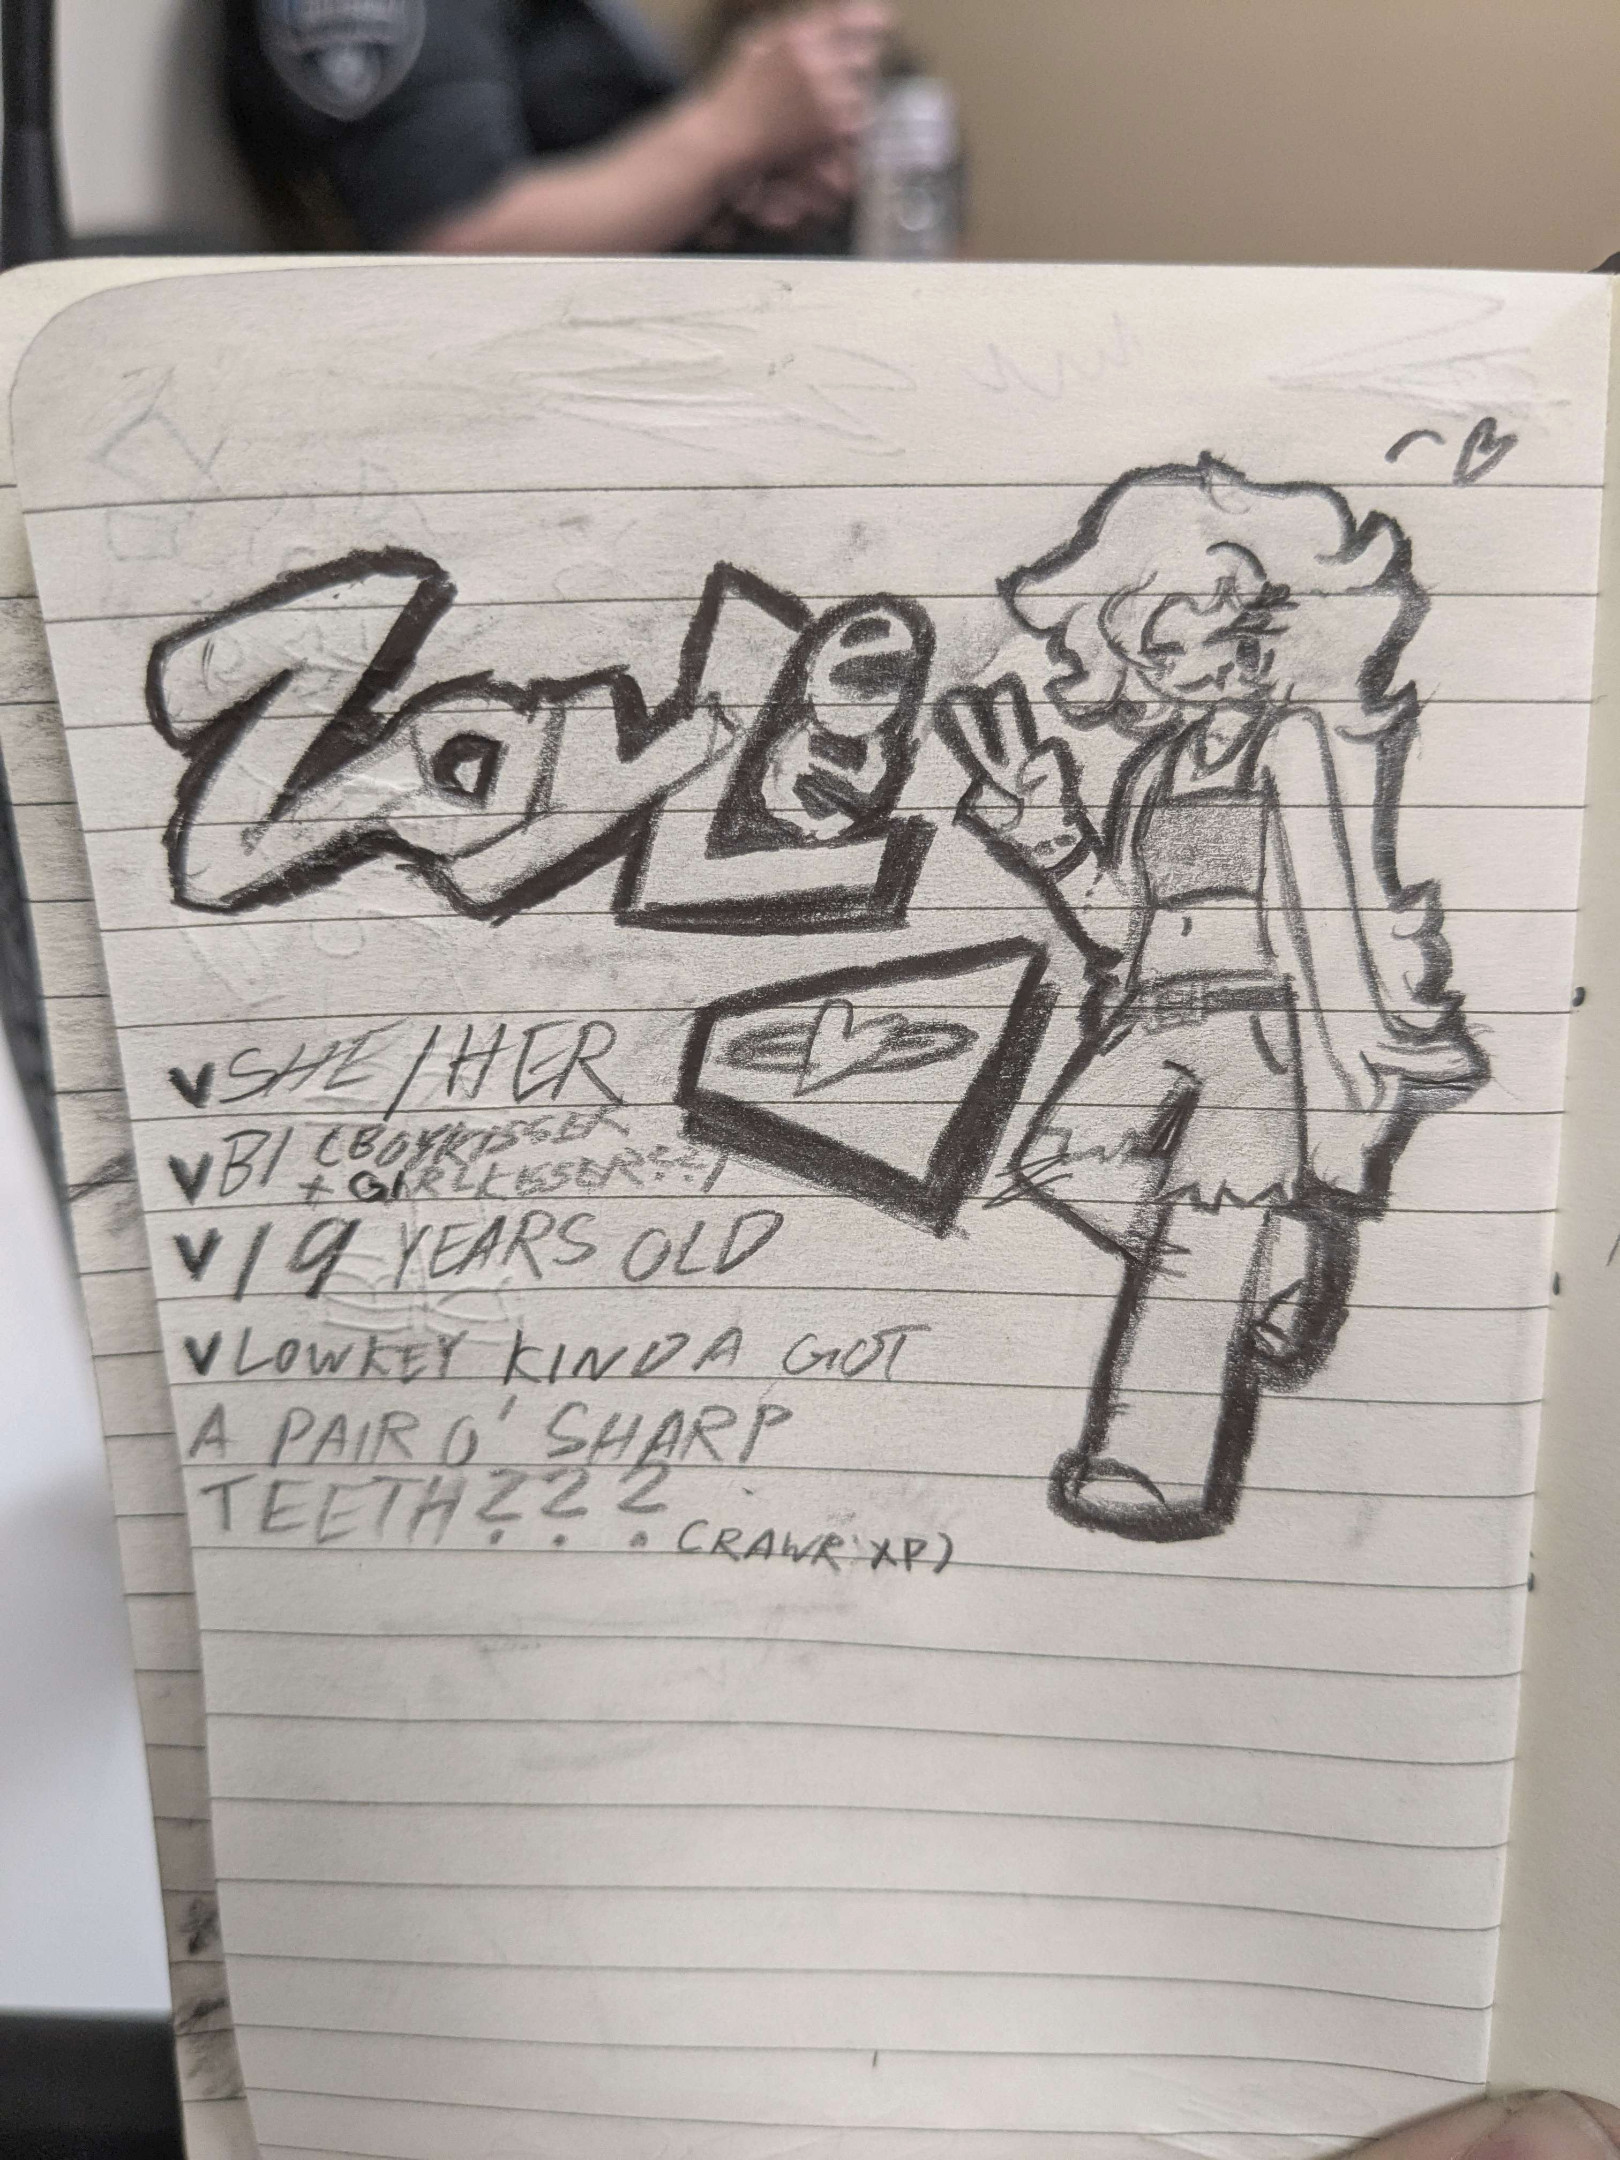 SHE/HER
BI (BOYKISSER
+ GIRLKISSER??)
19 YEARS OLD
LOWKEY KINDA GOT
A PAIR O' SHARP
TEETH???
(RAWR XP)